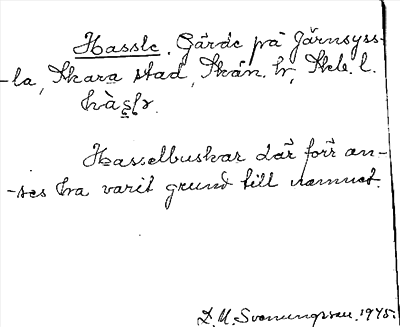 Hassle. Gärde på Järnsyss-
-la, Skara stad, Skån. hr, Skb. l.
Hasselbuskar där förr an-
-ses ha varit grund till namnet.
D. U. Svenungsson. 1945.